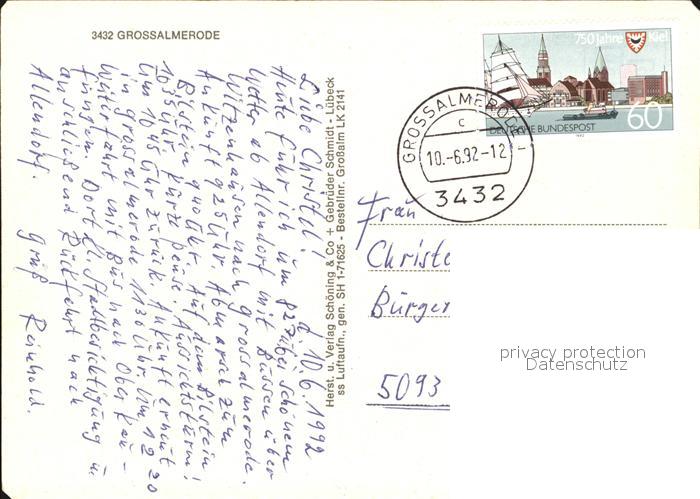 3432 GROSSALMERODE
d. 10.6.1992
Liebe Christel!
Heute fuhr ich um 827 bei schönem
ab Allendorf mit Bussen über
Witzenhausen nach Grossalmerode.
Ankunft 925 Uhr. Abmarsch zum
Bilstein 940 Uhr. Auf dem Bilstein
1035 Uhr kurze Pause. Aussichtsturm!
Um 1045 Uhr zurück. Ankunft erneut
in Grossalmerode 1130 Uhr. Um 1220
Weiterfahrt mit Bus nach Ober Kau-
fungen. Dort kl. Stadtbesichtigung u.
anschliessend Rückfahrt nach
Allendorf. Gruß Reinhold.
Herst. u. Verlag Schöning & Co + Gebrüder Schmidt - Lübeck
ss Luftaufn., gen. SH 1-71625 - Bestellnr. Großalm LK 2141
750 Jahre Kiel
DEUTSCHE BUNDESPOST
60
1992
GROSSALMERODE 1
c
10.-6.92-12
3432
Frau
Christe
Bürger
5093
privacy protection
Datenschutz